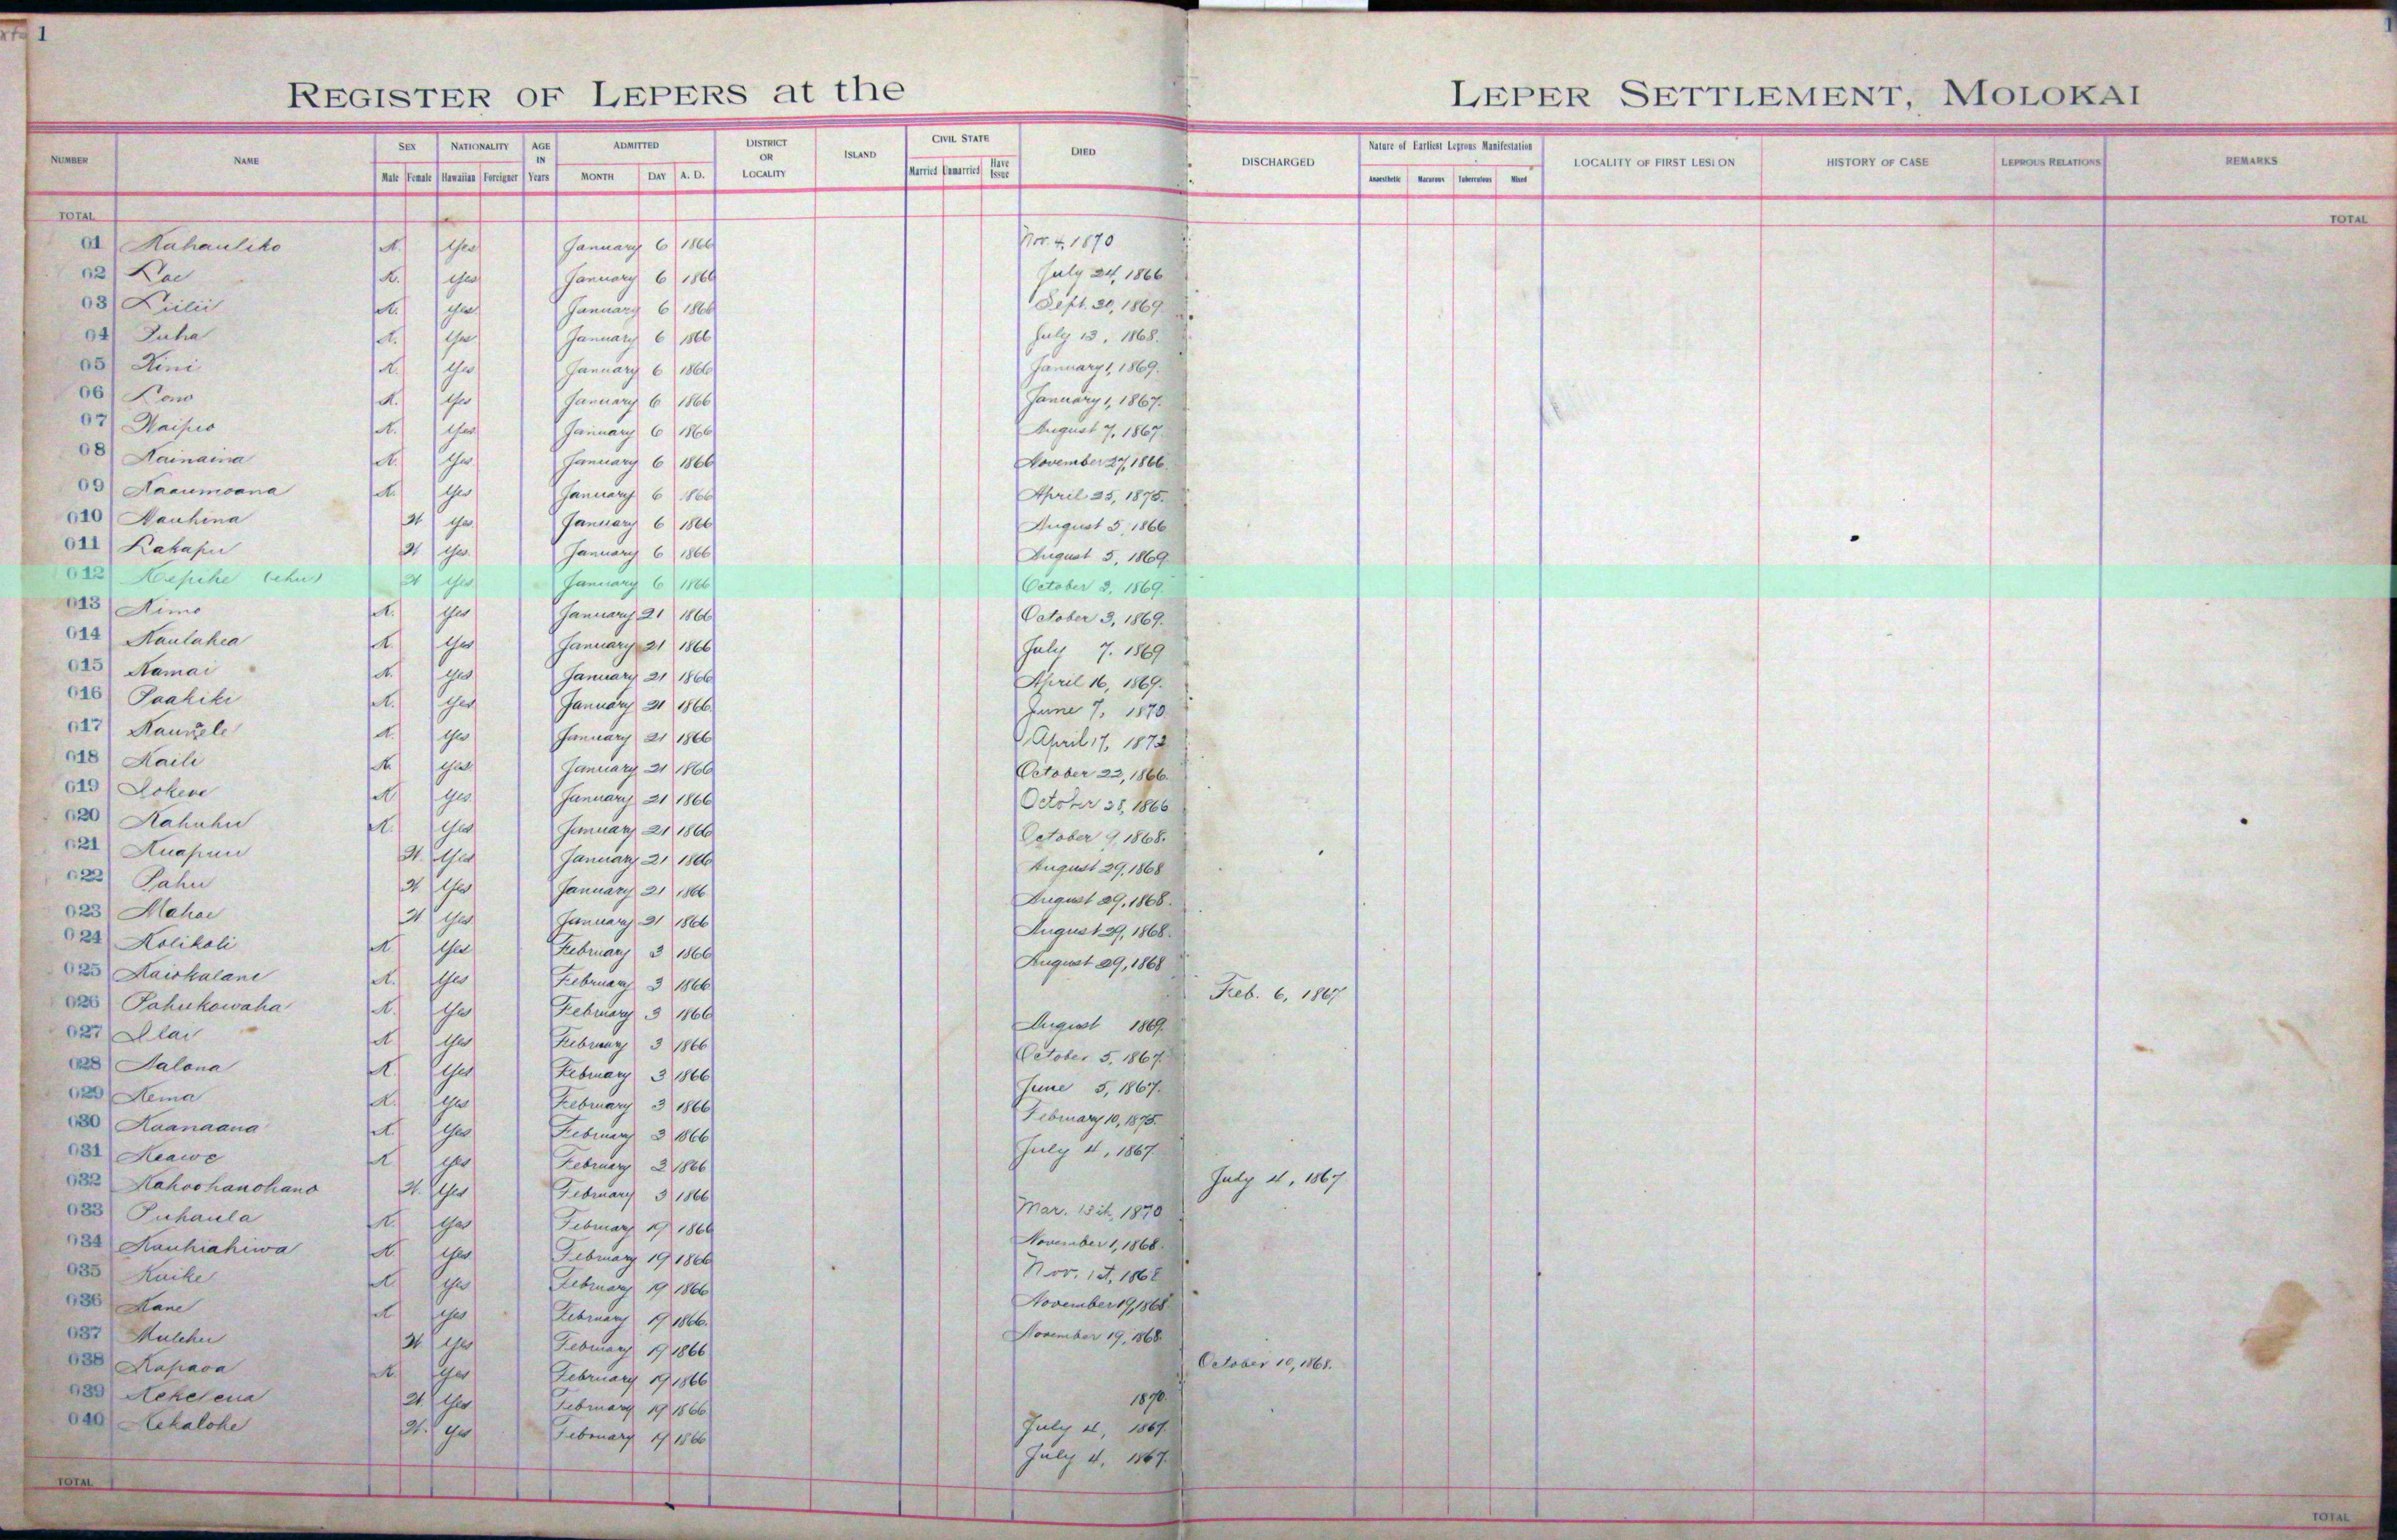 1
REGISTER OF LEPERS at the LEPER SETTLEMENT, MOLOKAI
NUMBER NAME SEX Male Female NATIONALITY Hawaiian Foreigner AGE IN Years ADMITTED MONTH DAY A. D. DISTRICT OR LOCALITY ISLAND CIVIL STATE Married Unmarried Have Issue DIED DISCHARGED Nature of Earliest Leprous Manifestation Anaesthetic Macurous Tuberculous Mixed LOCALITY OF FIRST LESION HISTORY OF CASE LEPROUS RELATIONS REMARKS
TOTAL TOTAL
01 Kahauliko K. Yes January 6 1866 Nov. 4, 1870
02 Lae K. Yes January 6 1866 July 24, 1866
03 Liilii K. Yes January 6 1866 Sept. 30, 1869
04 Puha K. Yes January 6 1866 July 13, 1868.
05 Kini K. Yes January 6 1866 January 1, 1869.
06 Lono K. Yes January 6 1866 January 1, 1867.
07 Waipio K. Yes January 6 1866 August 7, 1867.
08 Kainaina K. Yes January 6 1866 November 27, 1866.
09 Kaaumoana K. Yes January 6 1866 April 25, 1875.
010 Nauhina W Yes January 6 1866 August 5, 1866
011 Lakapu W Yes. January 6 1866 August 5, 1869.
012 Kepihe (ehu) W Yes January 6 1866 October 3, 1869.
013 Kimo K. Yes January 21 1866 October 3, 1869.
014 Kaulahea K. Yes January 21 1866 July 7. 1869
015 Kamai K. Yes January 21 1866 April 16, 1869.
016 Paakiki K. Yes January 21 1866. June 7, 1870.
017 K. Yes January 21 1866 April 17, 1872
018 Kaili K Yes January 21 1866 October 23, 1866.
019 Lokene K Yes. January 21 1866 October 28, 1866
020 Kahuhu K. Yes January 21 1866 October 9, 1868.
021 Kuapuu W. Yes January 21 1866 August 29, 1868
022 Pahu W Yes January 21 1866 August 29, 1868.
023 Mahoe W Yes January 21 1866 August 29, 1868.
024 Kolikoli K. Yes February 3 1866 August 29, 1868
025 Kaiokalani K. Yes February 3 1866 Feb. 6, 1867
026 Pahukowaha K. Yes February 3 1866 August 1869.
027 Ilai K Yes February 3 1866 October 5, 1867.
028 Nalona K. Yes February 3 1866 June 5, 1867.
029 Kema K. Yes February 3 1866 February 10, 1875.
030 Kaanaana K. Yes February 3 1866 July 4, 1867
031 Keawe K Yes February 3 1866 July 4, 1867
032 Kahoohanohano W. Yes February 3 1866 Mar. 13th, 1870
033 Puhaula K. Yes February 19 1866 November 1, 1868.
034 Kauhiahiwa K. Yes February 19 1866 Nov. 1st, 1868
035 Kuike K Yes February 19 1866 November 19, 1868
036 Kane K Yes February 19 1866. November 19, 1868.
037 Mulehu W Yes February 19 1866 October 10, 1868.
038 Kapaoa K. Yes February 19 1866 1870.
039 Kekelena W Yes February 19 1866 July 4, 1867.
040 Kekalohe W. Yes February 19 1866 July 4, 1867.
TOTAL TOTAL